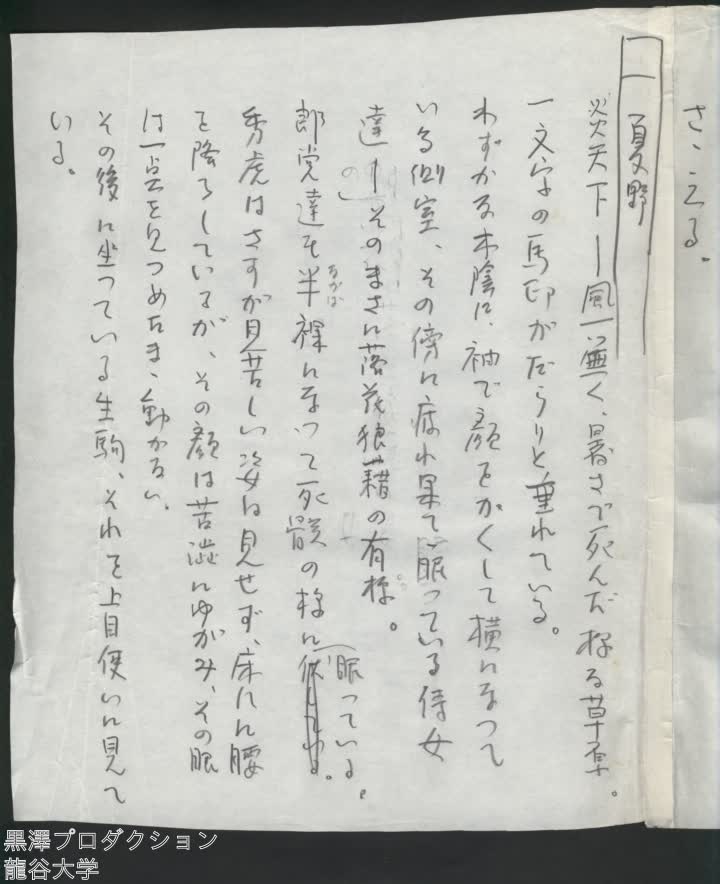 さゝえる。
夏野
炎天下ー風一つ無く、暑さで死んだ様な草原。
一文字の馬印がだらりと垂れている。
わずかな木陰に、袖で顔をかくして横になって
いる側室、その傍に疲れ果て眠っている侍女
達ーそのまさに落花狼藉の有様。
の
郎党達も半裸になって死骸の様に
なかば
眠っている。
秀虎はさすが見苦しい姿は見せず、床几に腰
を降ろしているが、その顔は苦澁にゆがみ、その眼
は一点を見つめたまゝ動かない。
その後に坐っている生駒、それを上目使いに見て
いる。
黒澤プロダクション
龍谷大学